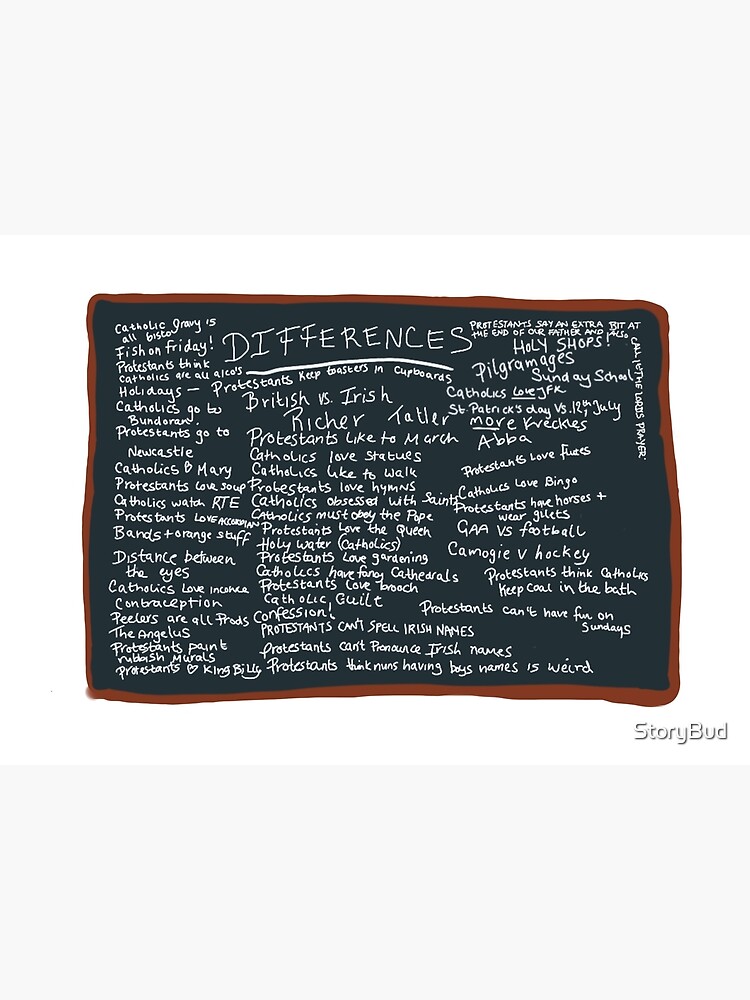 DIFFERENCES
Catholic gravy is
all bisto
Fish on Friday!
Protestants think
Catholics are all alco's
Holidays —
Catholics go to
Bundoran.
Protestants go to
Newcastle
Catholics ♡ Mary
Protestants Love soup
Catholics watch RTE
Protestants LOVE ACCORDIAN
Bands + orange stuff
Distance between
the eyes
Catholics Love Incence
Contraception
Peelers are all Prods
The Angelus
Protestants paint
rubbish Murals
Protestants ♡ King Billy
Protestants keep toasters in cupboards
British vs. Irish
Richer Taller
Protestants like to March
Catholics love statues
Catholics like to walk
Protestants love hymns
Catholics obsessed with Saints
Catholics must obey the Pope
Protestants Love the Queen
Holy water (Catholics)
Protestants Love gardening
Catholics have fancy Cathedrals
Protestants Love brooch
Catholic Guilt
Confession!
PROTESTANTS CAN'T SPELL IRISH NAMES
Protestants can't Pronounce Irish names
Protestants think nuns having boys names is weird
PROTESTANTS SAY AN EXTRA BIT AT
THE END OF OUR FATHER AND ALSO
CALL IT THE LORDS PRAYER!
HOLY SHOPS!
Pilgramages
Sunday School
Catholics Love JFK
St. Patrick's day Vs. 12th July
more Freckles
Abba
Protestants Love Fleges
Catholics Love Bingo
Protestants have horses +
wear gilets
GAA VS football
Camogie V hockey
Protestants think Catholics
keep coal in the bath
Protestants can't have fun on
Sundays
StoryBud